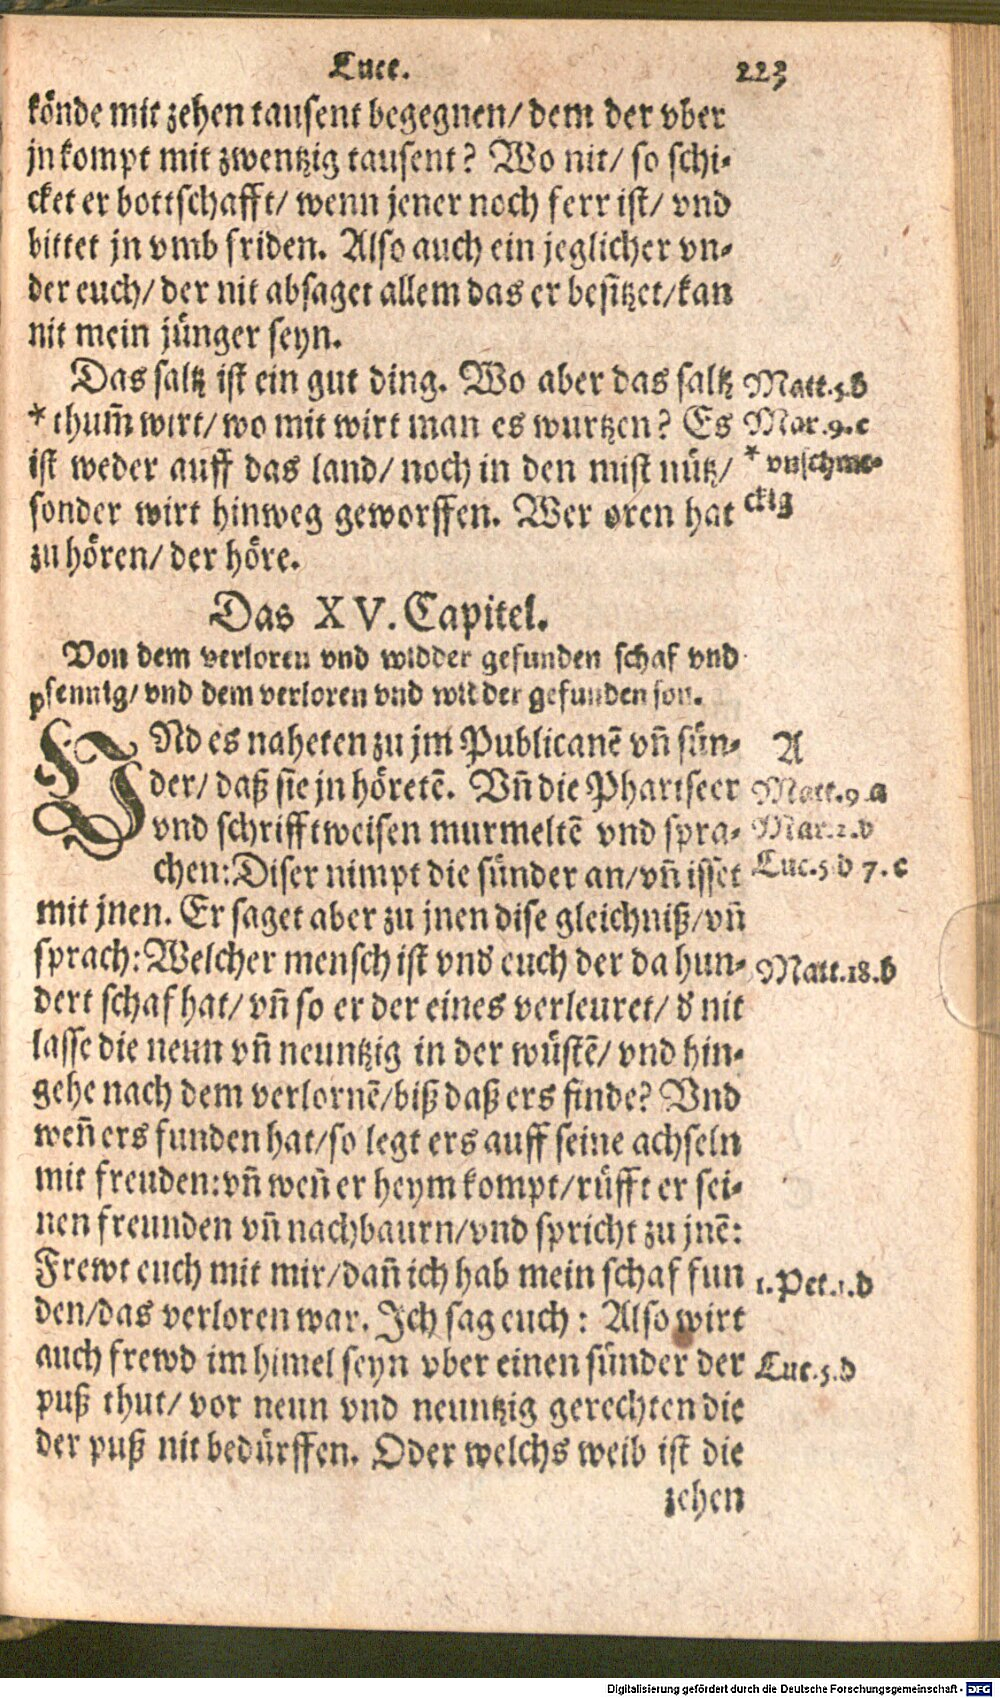 Luce. 223
könde mit zehen tausent begegnen/ dem der vber
jn kompt mit zwentzig tausent? Wo nit/ so schi-
cket er bottschafft/ wenn jener noch ferr ist/ vnd
bittet jn vmb friden. Also auch ein jeglicher vn-
der euch/ der nit absaget allem das er besitzet/ kan
nit mein jünger seyn.
Das saltz ist ein gut ding. Wo aber das saltz
Matt.5.b
* thum̄ wirt/ wo mit wirt man es wurtzen? Es
Mar.9.c
ist weder auff das land/ noch in den mist nütz/
* vnschme-
sonder wirt hinweg geworffen. Wer oren hat
ckig
zu hören/ der höre.
Das XV. Capitel.
Von dem verloren vnd widder gefunden schaf vnd
pfennig/ vnd dem verloren vnd widder gefunden son.
VNd es naheten zu jm Publicanē vn̄ sün-
A
der/ daß sie jn höretē. Vn̄ die Phariseer
Matt.9.a
vnd schrifftweisen murmeltē vnd spra-
Mar.2.b
chen: Diser nimpt die sünder an/ vn̄ isset
Luc.5.d 7.c
mit jnen. Er saget aber zu jnen dise gleichniß/ vn̄
sprach: Welcher mensch ist vnd̕ euch der da hun-
Matt.18.b
dert schaf hat/ vn̄ so er der eines verleuret/ d̕ nit
lasse die neun vn̄ neuntzig in der wüstē/ vnd hin-
gehe nach dem verlornē/ biß daß ers finde? Vnd
wen̄ ers funden hat/ so legt ers auff seine achseln
mit freuden: vn̄ wen̄ er heym kompt/ rüfft er sei-
nen freunden vn̄ nachbaurn/ vnd spricht zu jnē:
Frewt euch mit mir/ dan̄ ich hab mein schaf fun
1.Pet.1.d
den/ das verloren war. Ich sag euch: Also wirt
auch frewd im himel seyn vber einen sünder der
Luc.5.d
puß thut/ vor neun vnd neuntzig gerechten die
der puß nit bedürffen. Oder welchs weib ist die
zehen
Digitalisierung gefördert durch die Deutsche Forschungsgemeinschaft - DFG